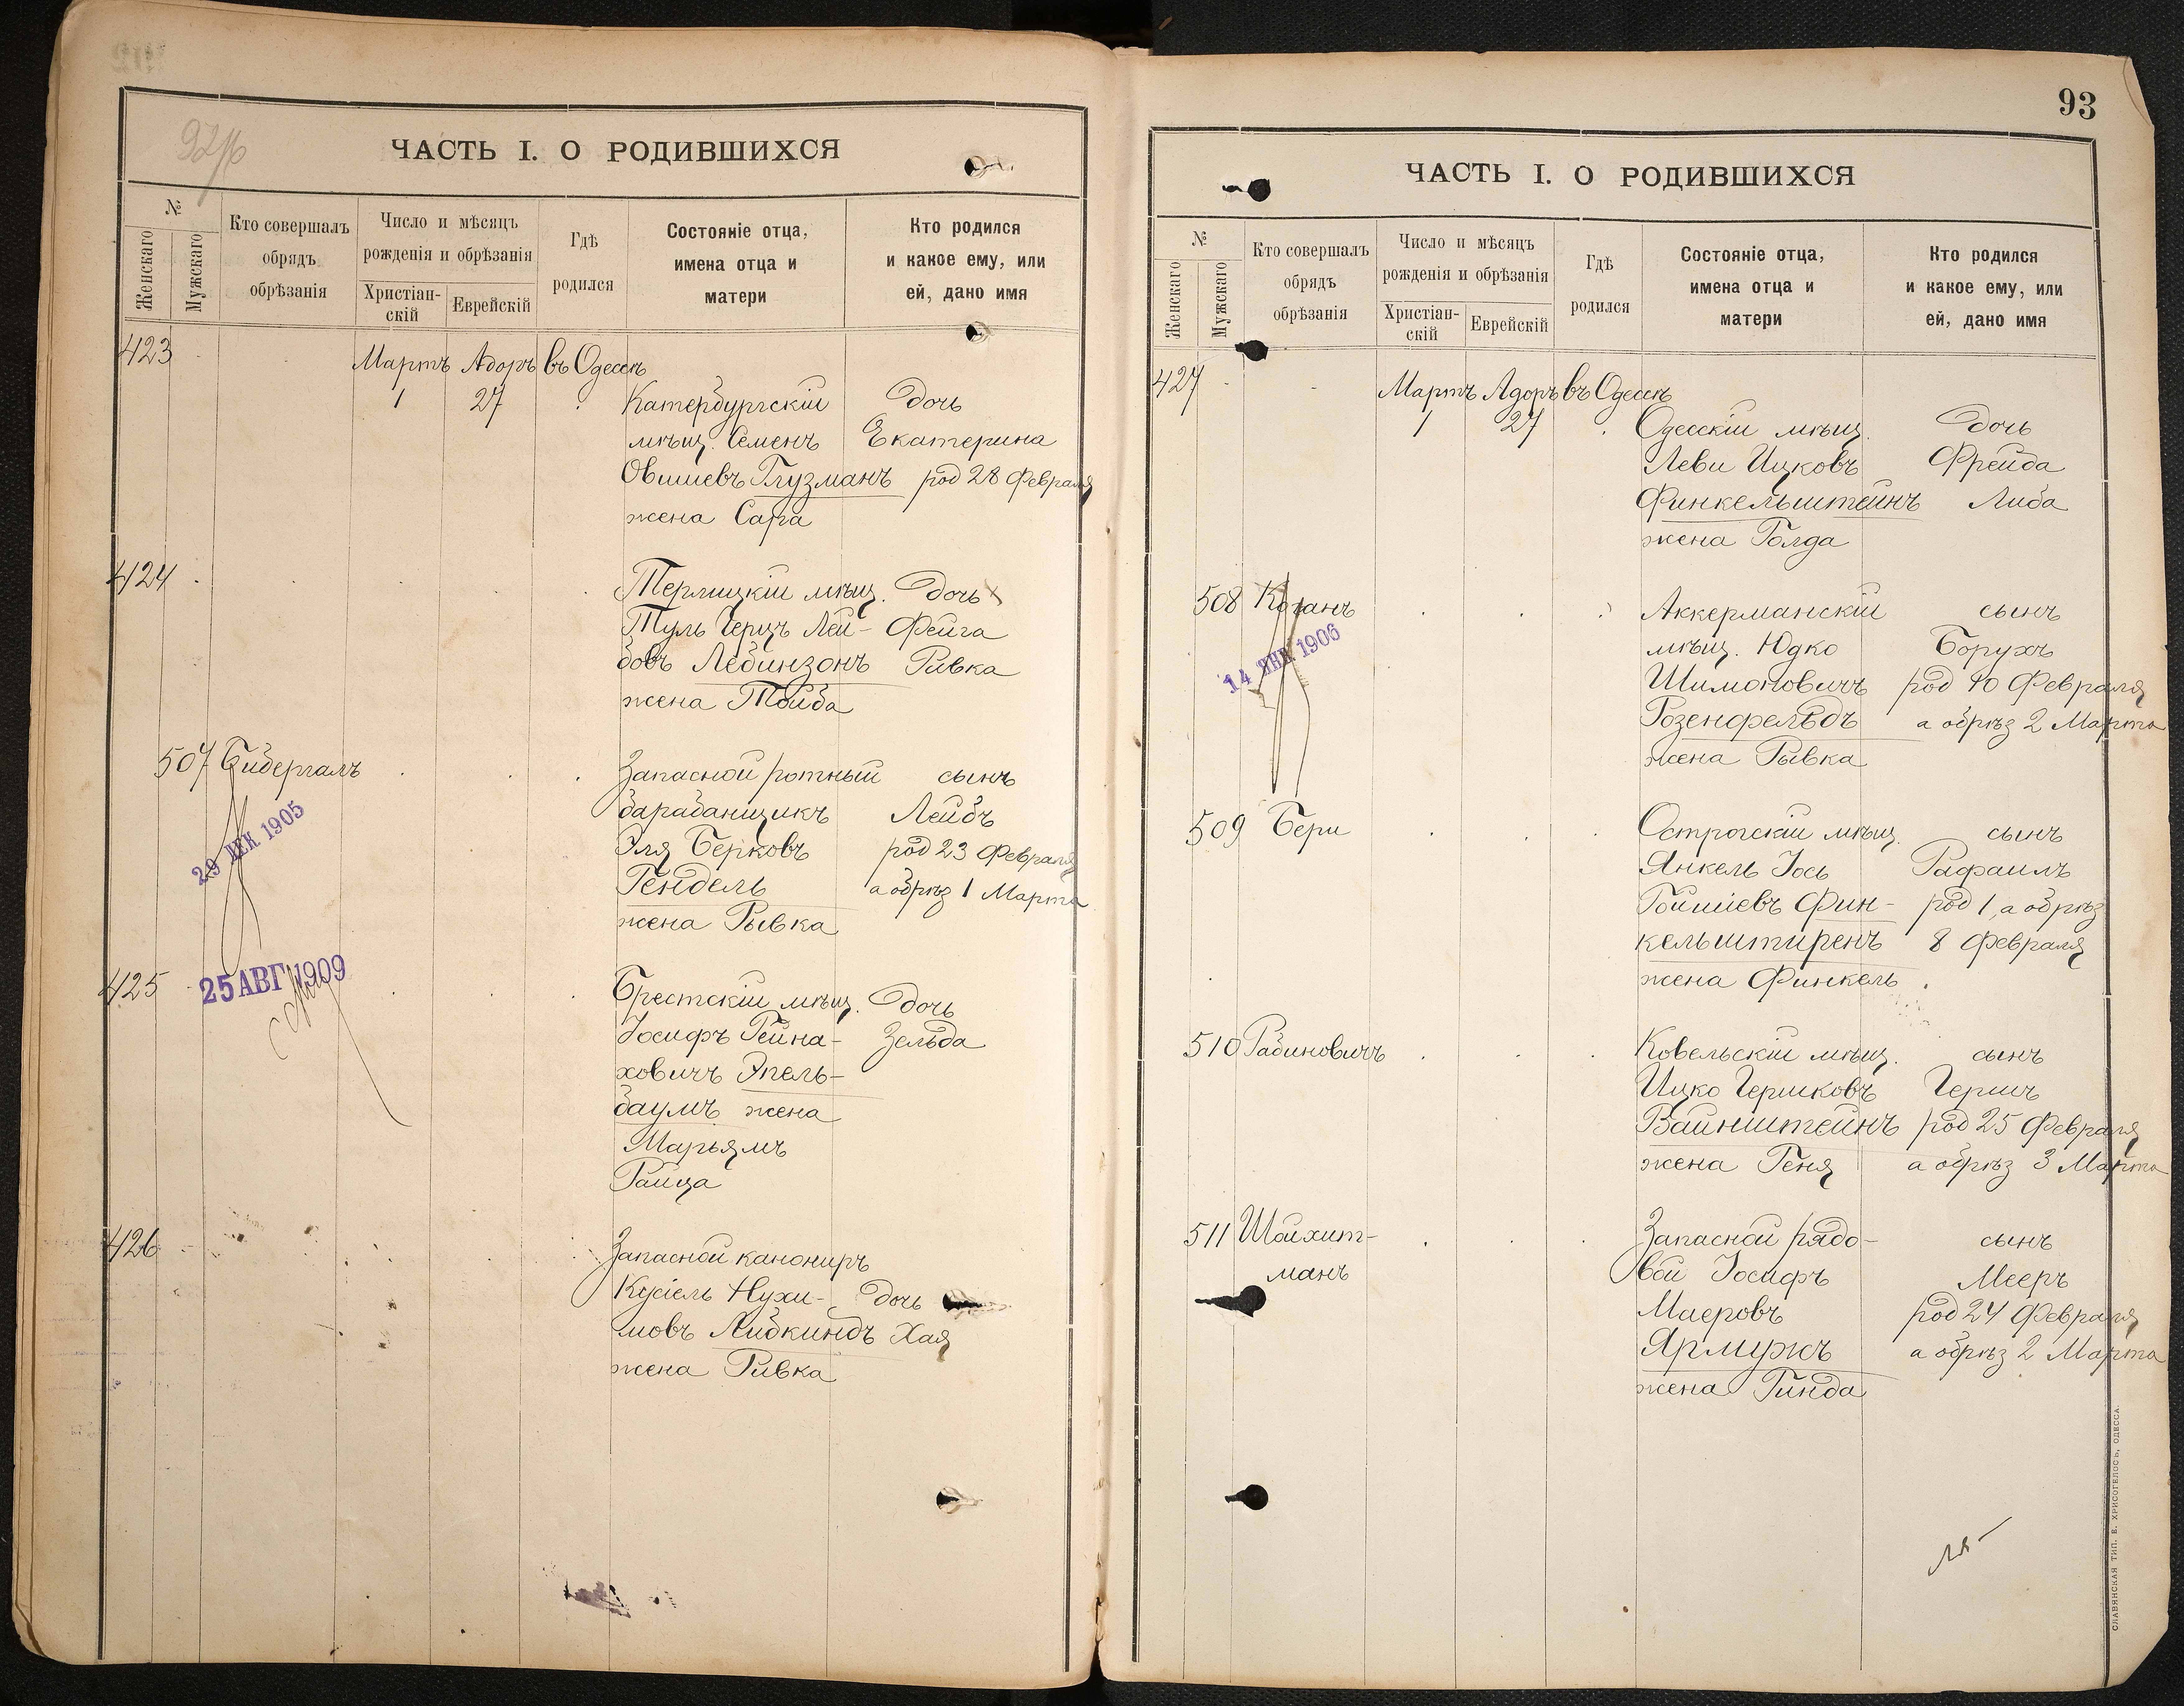 92/б
ЧАСТЬ I. О РОДИВШИХСЯ
№
Женскаго
Мужскаго
Кто совершалъ
обрядъ
обрѣзанія
Число и мѣсяцъ
рожденія и обрѣзанія
Христіан-
скій
Еврейскій
Гдѣ
родился
Состояніе отца,
имена отца и
матери
Кто родился
и какое ему, или
ей, дано имя
423
Мартъ Адоръ въ Одессѣ
1 27 Катербургскій дочь
мѣщ. Семенъ Екатерина
Овшиевъ Глузманъ род 28 Февраля
жена Сара
424 Терлицкій мѣщ. дочь
Туль Герцъ Лей- Фейга
бовъ Лебинзонъ Ривка
жена Тойба
507 Бибергалъ Запасной ротный сынъ
барабанщикъ Лейбъ
Эля Берковъ род 23 Февраля
Гендель а обрѣз 1 Марта
жена Рывка
29 ДЕК 1905
25 АВГ 1909
425 Брестскій мѣщ. дочь
Іосифъ Гейна- Зельда
ховичъ Эпель-
баумъ жена
Марьямъ
Раица
426 Запасной канониръ
Кусіель Нухи- дочь
мовъ Либкиндъ Хая
жена Ривка
93
ЧАСТЬ I. О РОДИВШИХСЯ
№
Женскаго
Мужскаго
Кто совершалъ
обрядъ
обрѣзанія
Число и мѣсяцъ
рожденія и обрѣзанія
Христіан-
скій
Еврейскій
Гдѣ
родился
Состояніе отца,
имена отца и
матери
Кто родился
и какое ему, или
ей, дано имя
427 Мартъ Адоръ въ Одессѣ
1 27 Одесскій мѣщ. дочь
Леви Ицковъ Фрейда
Финкельштейнъ Либа
жена Голда
508 Коганъ Аккерманскій сынъ
мѣщ. Юдко Борухъ
Шимоновичъ род 10 Февраля
Розенфельдъ а обрѣз 2 Марта
жена Рывка
14 ЯНВ 1906
509 Бери Острогскій мѣщ. сынъ
Янкель Іось Рафаилъ
Гойшіевъ Фин- род 1, а обрѣз
кельштиренъ 8 Февраля
жена Финкель
510 Рабиновичъ Ковельскій мѣщ. сынъ
Ицко Гершковъ Гершъ
Вайнштейнъ род 25 Февраля
жена Геня а обрѣз 3 Марта
511 Шойхит- Запасной рядо- сынъ
манъ вой Іосифъ Мееръ
Маеровъ род 24 Февраля
Ярмужъ а обрѣз 2 Марта
жена Гинда
СЛАВЯНСКАЯ ТИП. Е. ХРИСОГЕЛОСЪ, ОДЕССА.